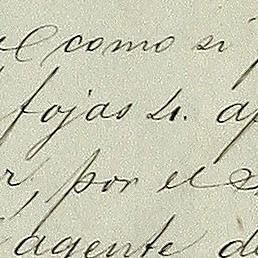 como si
fojas 21. ap
r, por el
agente de